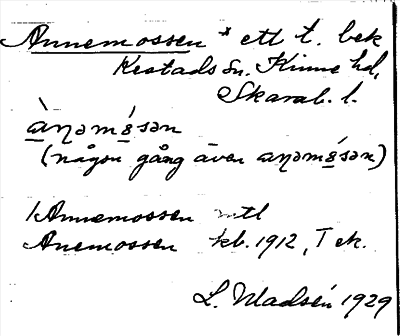 Annemossen * ett t. bek
Kestads sn. Kinne hd,
Skarab. l.
àŋəmo̱sən
(någon gång även aŋəmó̱sən)
1 Annemossen mtl
Anemossen kb. 1912, T ek.
L. Madsén 1929